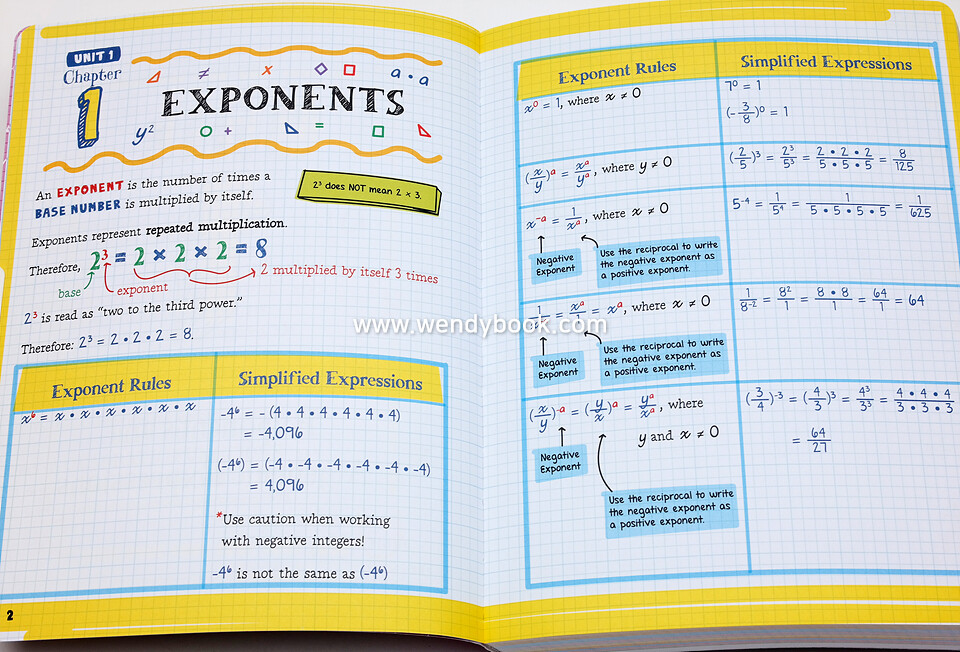 UNIT 1
Chapter
1
EXPONENTS
≠ x a • a
y² + =
An EXPONENT is the number of times a
BASE NUMBER is multiplied by itself.
2³ does NOT mean 2 × 3.
Exponents represent repeated multiplication.
Therefore, 2³ = 2 × 2 × 2 = 8
base exponent 2 multiplied by itself 3 times
2³ is read as “two to the third power.”
Therefore: 2³ = 2 • 2 • 2 = 8.
Exponent Rules Simplified Expressions
x⁶ = x • x • x • x • x • x
-4⁶ = - (4 • 4 • 4 • 4 • 4 • 4)
= -4,096
(-4⁶) = (-4 • -4 • -4 • -4 • -4 • -4)
= 4,096
*Use caution when working
with negative integers!
-4⁶ is not the same as (-4⁶)
2
Exponent Rules Simplified Expressions
x⁰ = 1, where x ≠ 0
7⁰ = 1
(-3/8)⁰ = 1
(x/y)ᵃ = xᵃ/yᵃ, where y ≠ 0
(2/5)³ = 2³/5³ = 2 • 2 • 2/5 • 5 • 5 = 8/125
x⁻ᵃ = 1/xᵃ, where x ≠ 0
5⁻⁴ = 1/5⁴ = 1/5 • 5 • 5 • 5 = 1/625
Negative
Exponent
Use the reciprocal to write
the negative exponent as
a positive exponent.
= xᵃ/1 = xᵃ, where x ≠ 0
1/8⁻² = 8²/1 = 8 • 8/1 = 64/1 = 64
Negative
Exponent
Use the reciprocal to write
the negative exponent as
a positive exponent.
(x/y)⁻ᵃ = (y/x)ᵃ = yᵃ/xᵃ, where
y and x ≠ 0
(3/4)⁻³ = (4/3)³ = 4³/3³ = 4 • 4 • 4/3 • 3 • 3
= 64/27
Negative
Exponent
Use the reciprocal to write
the negative exponent as
a positive exponent.
www.wendybook.com